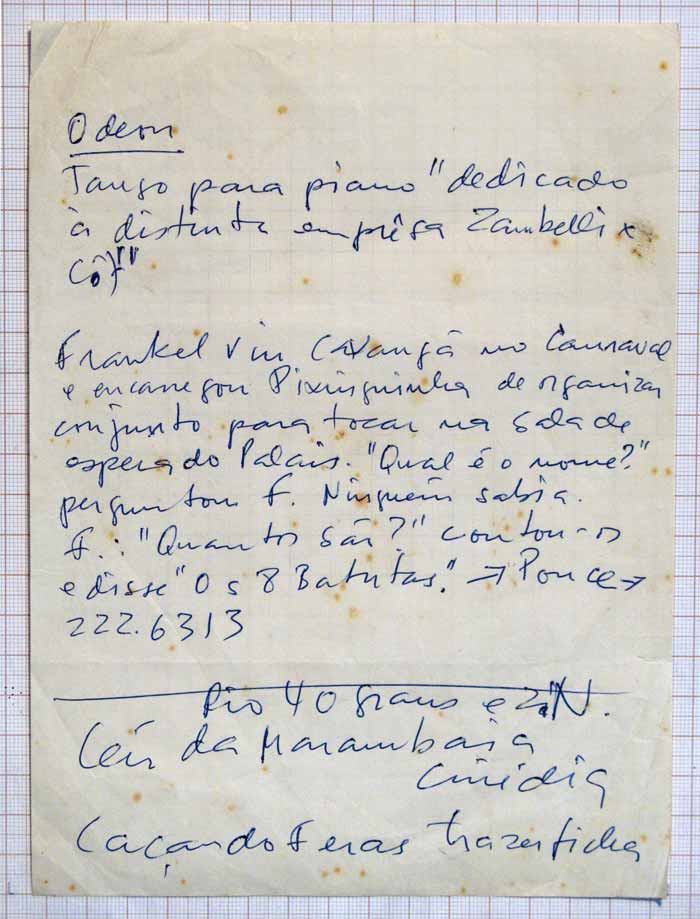 Odeon
Tango para piano "dedicado
à distinta emprêsa Zambelli &
Frankel viu no Carnaval
e encarregou Pixinguinha de organizar
conjunto para tocar na sala de
espera do Palais. "Qual é o nome?"
perguntou F. Ninguém sabia.
F.: "Quantos são?" contou-os
e disse "Os 8 Batutas." → Ponce →
222.6313
Rio 40 Graus e
da Marambaia
Cinédia
Caçando Feras trazer ficha